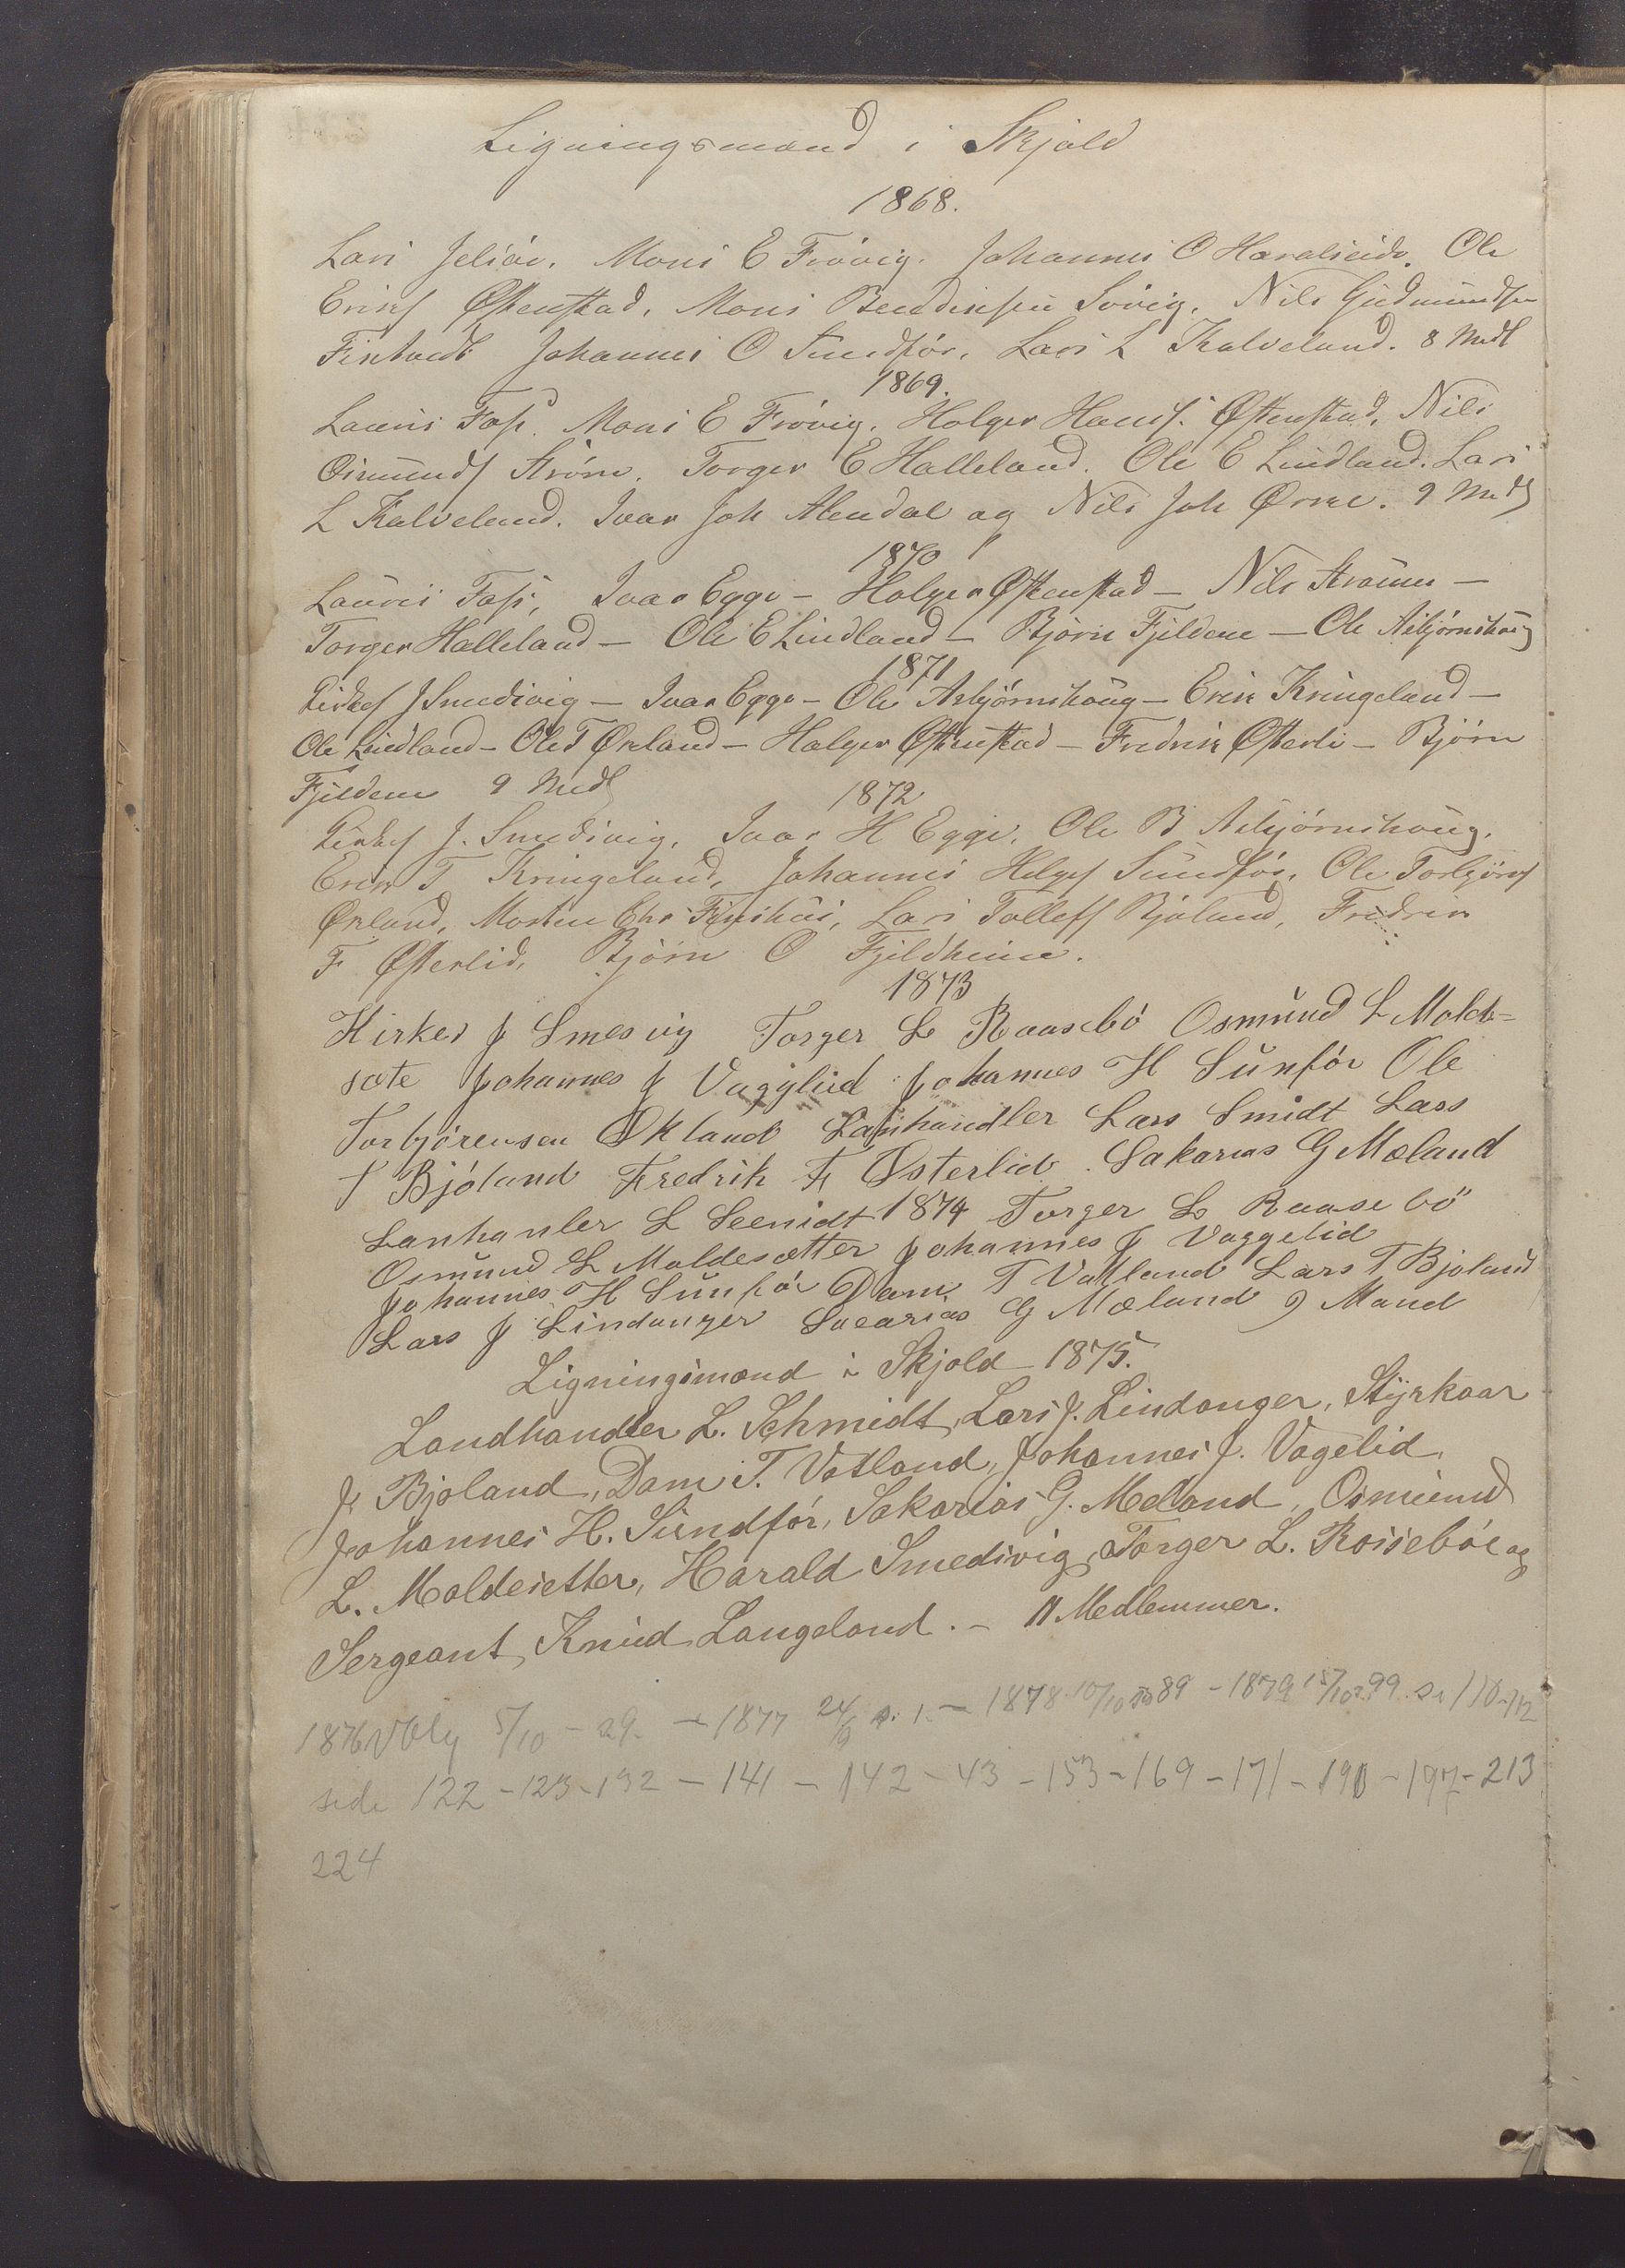 Ligningsmænd i Skjold
1868.
Lars Jelsaë. Mons E Frövig. Johannes O Haraldseide. Ole
Eriks Østenstad, Mons Bendiksen Sövig, Nils Gudmundsen
Fintvedt Johannes O Sundför, Lars L Kalveland. 8 Medl
1869.
Laurs Foss. Mons E Frövig. Holger Hans. Østenstad, Nils
Osmunds Ström. Torger E Halleland. Ole E Lindland. Lars
L Kalveland. Ivar Joh Alendal og Nils Joh Ørne. 9 Medl
1870
Lauris Foss, Ivar Egge - Holger Østenstad - Nils Strömm -
Torger Halleland - Ole E Lindland - Björn Fjeldene - Ole Asbjörnshoug
1871
J Smedsvig - Ivar Egge - Ole Asbjörnshoug - Erik Kringeland -
Ole Lindland - Ole T Økland - Holger Østenstad - Fredrik Østerli - Björn
Fjeldene 9 Medl
1872
J. Smedsvig, Ivar H Egge, Ole B Asbjörnshoug,
Erik T Kringeland, Johannes Helges Sundför, Ole Torbjörns
Økland, Morten Chr Fonshus, Lars Tollefs Bjoland, Fredrik
F Østerlid, Björn O Fjeldheim.
1873
Hirkes J Smesvig Torger L Raasebö Osmund L Molde-
sæte Johannes J Vaggelied Johannes H Sunför Ole
Torbjörensen Økland Lanhandler Lars Smidt Lars
T Bjoland Fredrik F Østerlid. Sakarias G Mæland
Lanhanler L Seenidt 1874 Torger L Raasebö
Osmund L Moldesætter Johannes J Vaggelid
Johannes H Sunför Dam T Vatland Lars T Bjoland
Lars J Lindanger Sacarias G Mæland 9 Mand
Ligningsmænd i Skjold 1875.
Landhandler L. Schmidt, Lars J. Lindanger, Styrkaar
J. Bjoland, Dam T. Vatland, Johannes J. Vagelid,
Johannes H. Sundför, Sakarias G. Meland, Osmund
L. Moldesetter, Harald Smedsvig, Torger L. Roisebøe og
Sergeant Knud Langeland. - 11 Medlemmer.
1876 5/10 - 29. - 1877 24/9 s. 1. - 1878 10/10 s 89 - 1879 15/10 s. 99. s. 110-112
side 122 - 123 - 132 - 141 - 142 - 43 - 153 - 169 - 171 - 190 - 197 - 213
224